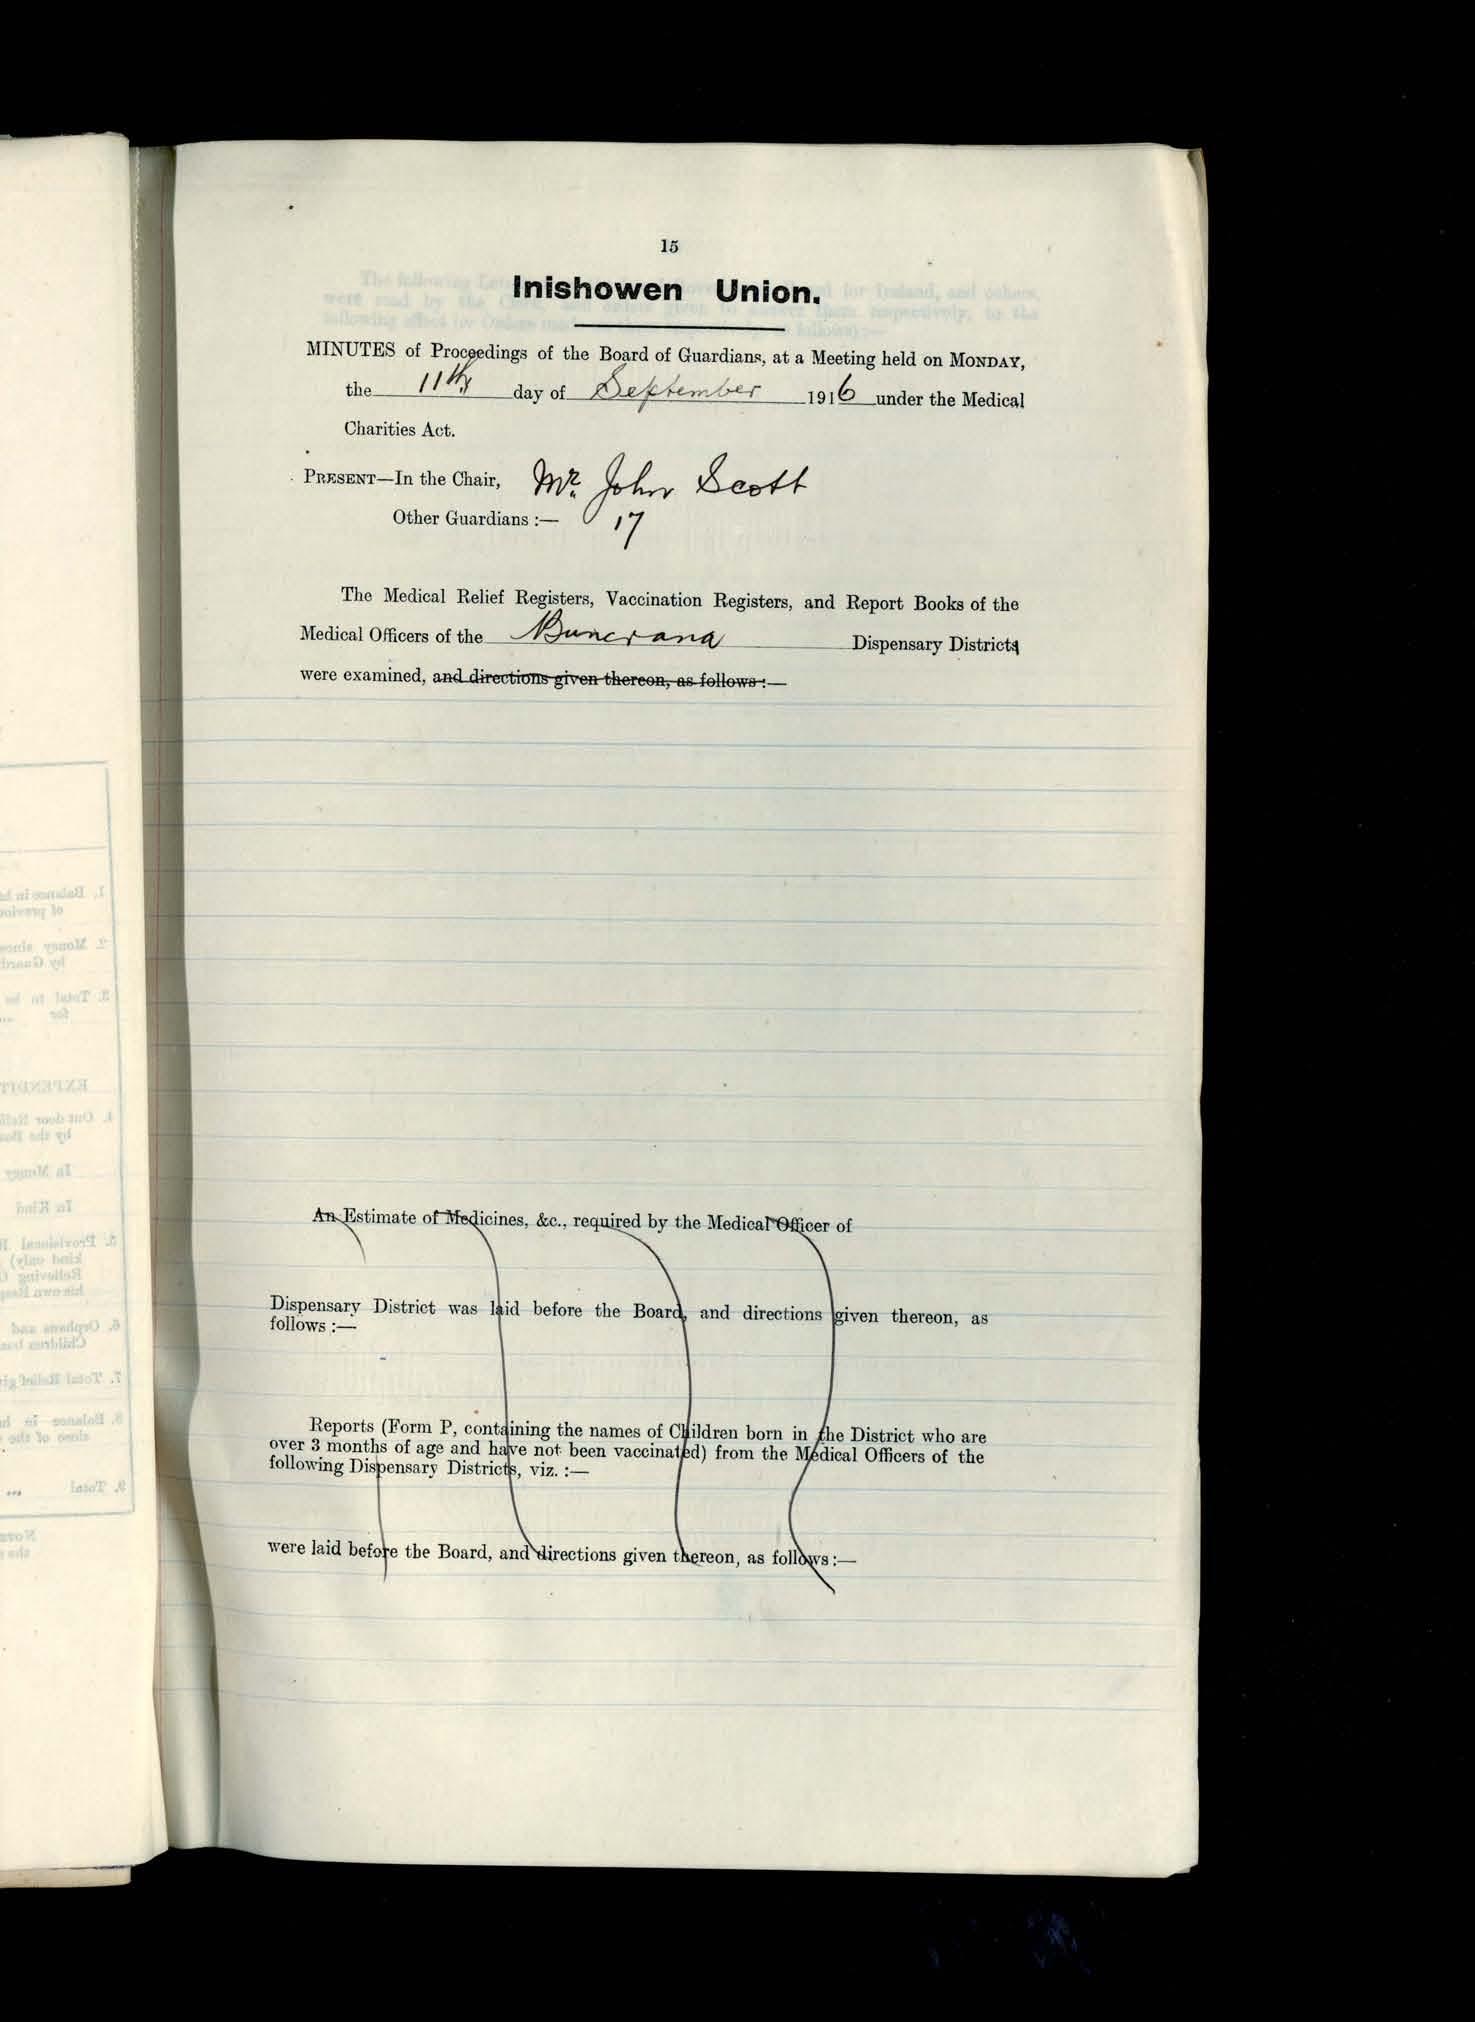 15
Inishowen Union.
MINUTES of Proceedings of the Board of Guardians, at a Meeting held on MONDAY,
the 11th day of September 1916 under the Medical
Charities Act.
PRESENT—In the Chair, Mr. John Scott
Other Guardians :— 17
The Medical Relief Registers, Vaccination Registers, and Report Books of the
Medical Officers of the Buncrana Dispensary Districts
were examined, and directions given thereon, as follows :—
An Estimate of Medicines, &c., required by the Medical Officer of
Dispensary District was laid before the Board, and directions given thereon, as
follows :—
Reports (Form P, containing the names of Children born in the District who are
over 3 months of age and have not been vaccinated) from the Medical Officers of the
following Dispensary Districts, viz. :—
were laid before the Board, and directions given thereon, as follows :—